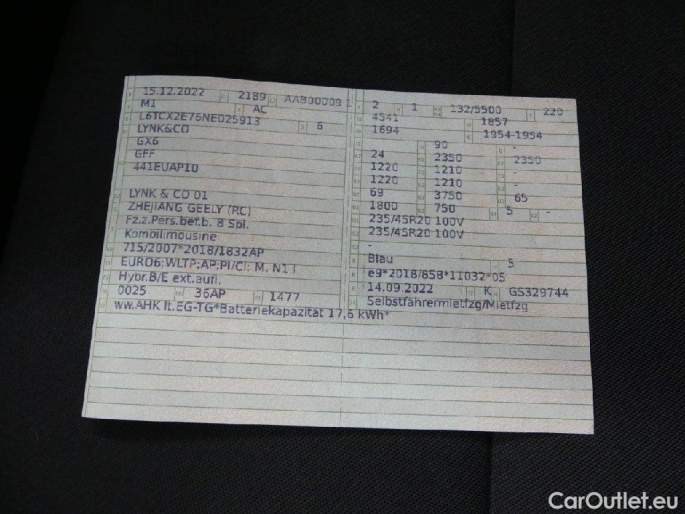 15.12.2022 2189 AAB00009 1
M1 AC
L6TCX2E76NE025913 6
LYNK&CO
GX6
GFF
441EUAP10
LYNK & CO 01
ZHEJIANG GEELY (RC)
Fz.z.Pers.bef.b. 8 Spl.
Kombilimousine
715/2007*2018/1832AP
EURO6;WLTP;AP;PI/CI; M, N1 I
Hybr.B/E ext.aufl.
0025 36AP 1477
ww.AHK lt.EG-TG*Batteriekapazität 17,6 kWh*
2 1 132/5500 220
4541 1857
1694 1954-1954
90 -
24 2350 2350
1220 1210 -
1220 1210 -
69 3750 65
1800 750 5 -
235/45R20 100V
235/45R20 100V
-
Blau 5
e9*2018/858*11032*05
14.09.2022 K GS329744
Selbstfahrermietfzg/Mietfzg
CarOutlet.eu